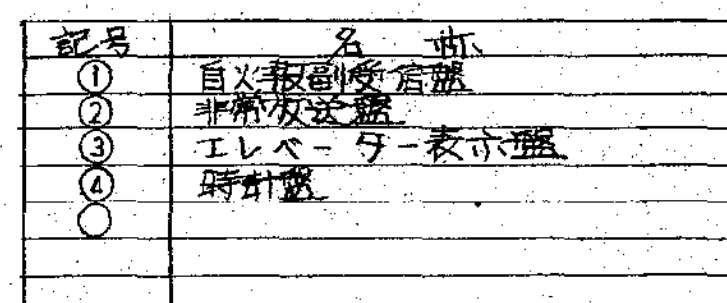 記号 名称
① 自火報副受信盤
② 非常放送盤
③ エレベーター表示盤
④ 時計盤
○